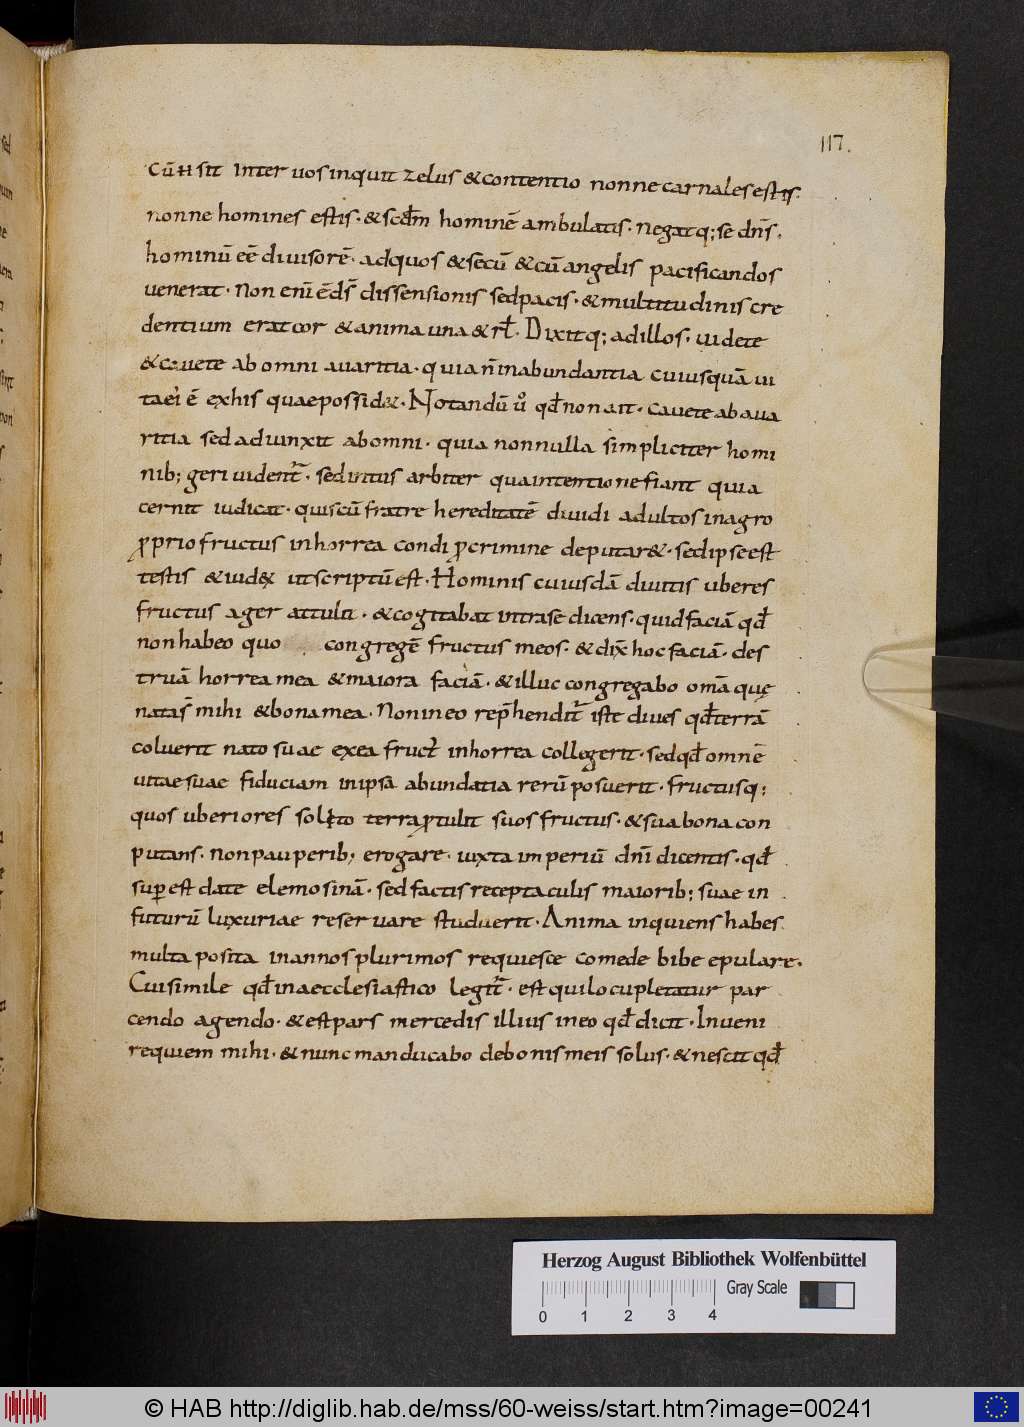 117.
cū H sit inter uos inquit zelus & contentio nonne carnales estis.
nonne homines estis. & scđm hominē ambulatis. negatq; se dn̄s.
hominū eē diuisorē. ad quos & secū & cū angelis pacificandos
uenerat. Non enī ē ds̄ dissensionis sed pacis. & multitudinis cre
dentium erat cor & anima una & rł. Dixitq; ad illos. uidete
& cauete ab omni auaritia. quia n̄ in abundantia cuiusquā ui
ta ei' ē ex his quae possid&. Notandū u° qđ non ait. cauete ab aua
ritia sed adiunxit ab omni. quia nonnulla simpliciter homi
nib; geri uidentr̄. sed intus arbiter qua intentione fiant quia
cernit iudicat. quis cū fratre hereditatē diuidi adultos in agro
ꝓprio fructus in horrea condi ꝓ crimine deputar&. sed ipse est
testis & iudex ut scriptū est. Hominis cuiusdā diuitis uberes
fructus ager attulit. & cogitabat intra se dicens. quid faciā qđ
non habeo quo congregē fructus meos. & dix̄ hoc faciā. des
truā horrea mea & maiora faciā. & illuc congregabo om̄a quę
nata s̄ mihi & bona mea. Non in eo rep̄henditr̄ iste diues qđ terrā
coluerit nato suae ex ea fruct' in horrea collegerit. sed qđ omnē
uitae suae fiduciam in ipsā abundatia rerū posuerit. fructusq;
quos uberiores solito terra ꝓtulit suos fructus. & sua bona con
putans. non pauperib; erogare. iuxta imperiū dn̄i dicentis. qđ
suꝑest date elemosinā. sed factis receptaculis maiorib; suae in
futurū luxuriae reseruare studuerit. Anima inquiens habes
multa posita in annos plurimos requiesce comede bibe epulare.
Cui simile qđ in aecclesiastico legitr̄. est qui locupletatur par
cendo agendo. & est pars mercedis illius in eo qđ dicit. Inueni
requiem mihi. & nunc manducabo de bonis meis solus. & nescit qđ
Herzog August Bibliothek Wolfenbüttel
Gray Scale
0 1 2 3 4
© HAB http://diglib.hab.de/mss/60-weiss/start.htm?image=00241